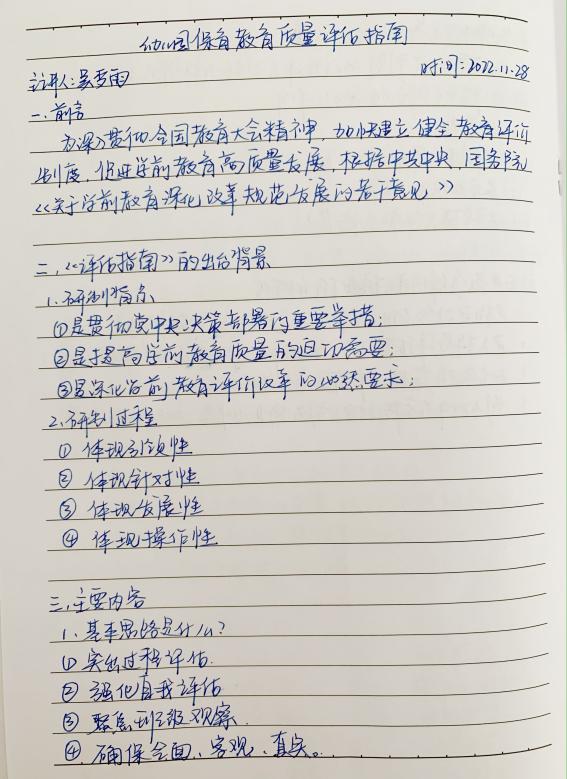 幼儿园保育教育质量评估指南
主讲人:吴雪雨 时间:2022.11.28
一、前言
为深入贯彻全国教育大会精神,加快建立健全教育评价
制度,促进学前教育高质量发展,根据中共中央、国务院
《关于学前教育深化改革规范发展的若干意见》
二、《评估指南》的出台背景
1.研制背景
①是贯彻党中央决策部署的重要举措;
②是提高学前教育质量的迫切需要;
③是深化学前教育评价改革的必然要求;
2.研制过程
① 体现引领性
② 体现针对性
③ 体现发展性
④ 体现操作性
三、主要内容
1、基本思路是什么?
① 突出过程评估.
② 强化自我评估
③ 聚焦班级观察.
④ 确保全面、客观、真实。